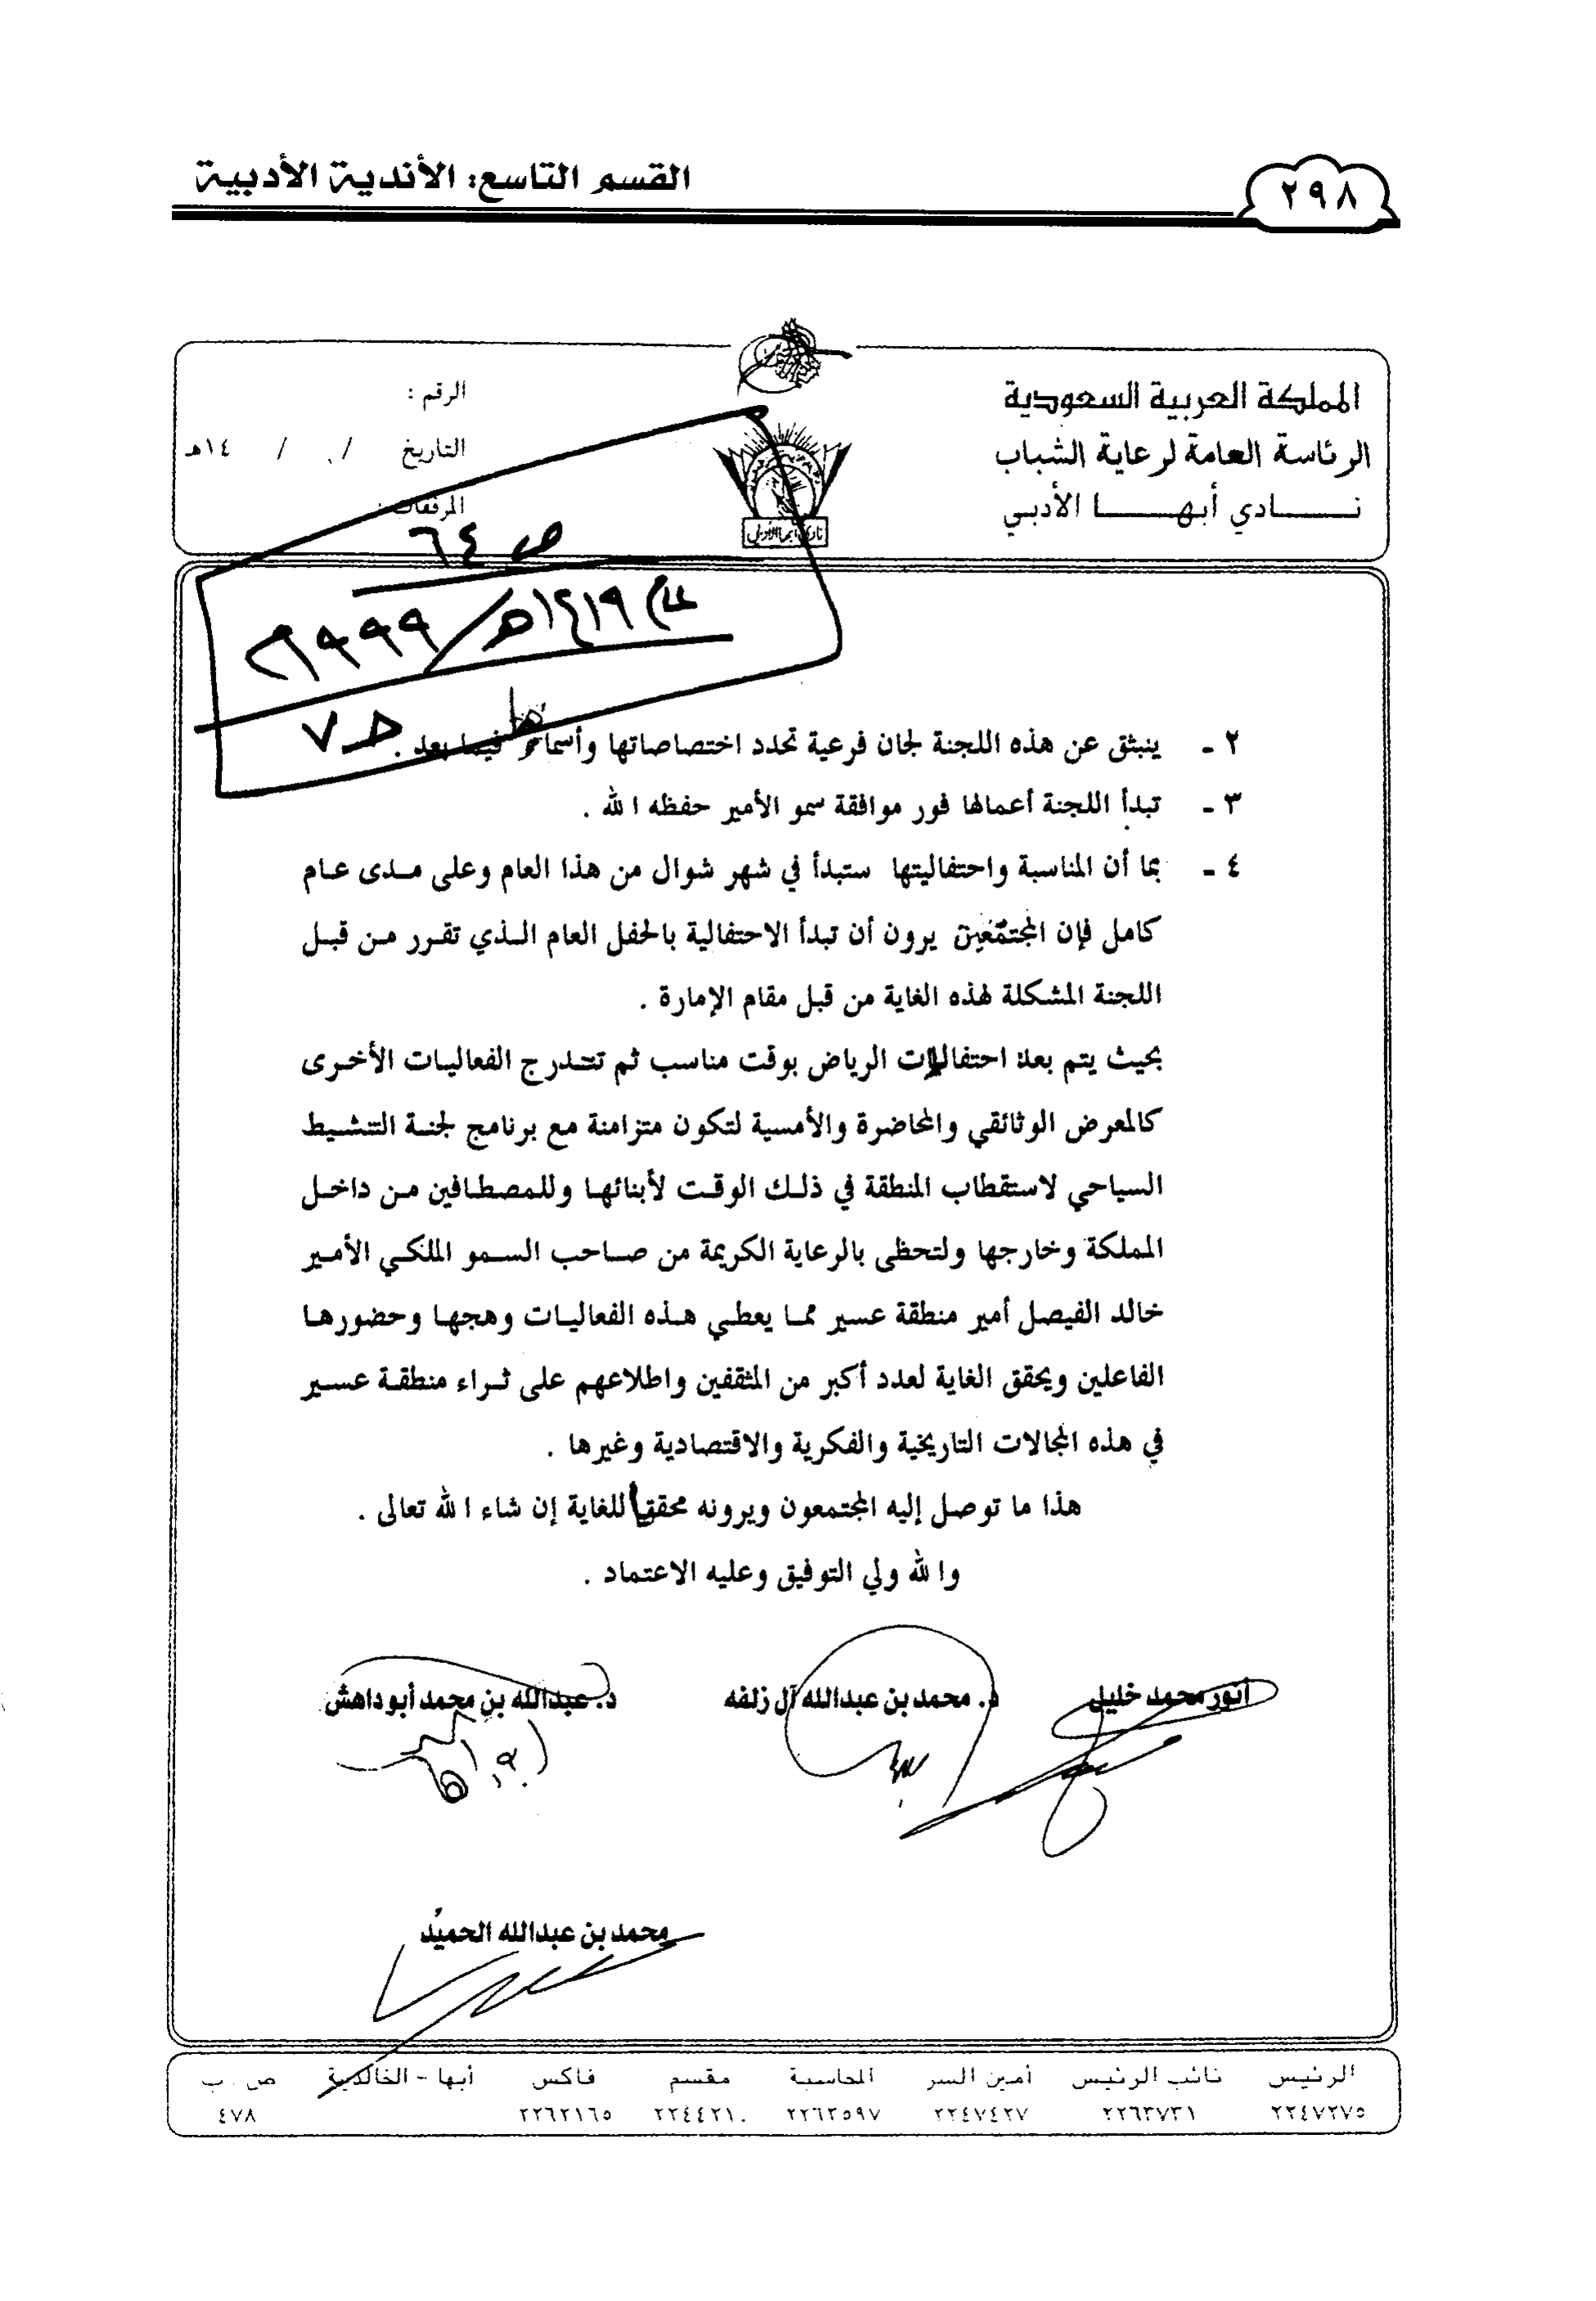 القسم التاسع: الأندية الأدبية
٢٩٨
المملكة العربية السعودية
الرئاسة العامة لرعاية الشباب
نـــادي أبهـــا الأدبي
الرقم :
التاريخ / / ١٤هـ
المرفقات :
نادي أبها الأدبي
ص ٦٤
عام ١٤١٩هـ/ ١٩٩٩م
حـ ٧
٢ - ينبثق عن هذه اللجنة لجان فرعية تحدد اختصاصاتها وأسماؤها فيما بعد .
٣ - تبدأ اللجنة أعمالها فور موافقة سمو الأمير حفظه الله .
٤ - بما أن المناسبة واحتفاليتها ستبدأ في شهر شوال من هذا العام وعلى مـدى عـام
كامل فإن المجتمعين يرون أن تبدأ الاحتفالية بالحفل العام الـذي تقـرر مـن قبـل
اللجنة المشكلة لهذه الغاية من قبل مقام الإمارة .
بحيث يتم بعد احتفالات الرياض بوقت مناسب ثم تتـدرج الفعاليـات الأخـرى
كالمعرض الوثائقي والمحاضرة والأمسية لتكون متزامنة مع برنامج لجنـة التنشـيط
السياحي لاستقطاب المنطقة في ذلـك الوقـت لأبنائهـا وللمصطـافين مـن داخـل
المملكة وخارجها ولتحظى بالرعاية الكريمة من صـاحب السـمو الملكـي الأمـير
خالد الفيصل أمير منطقة عسير ممـا يعطـي هـذه الفعاليـات وهجهـا وحضورهـا
الفاعلين ويحقق الغاية لعدد أكبر من المثقفين واطلاعهم على ثـراء منطقـة عسـير
في هذه المجالات التاريخية والفكرية والاقتصادية وغيرها .
هذا ما توصل إليه المجتمعون ويرونه محققا للغاية إن شاء الله تعالى .
والله ولي التوفيق وعليه الاعتماد .
أنور محمد خليل
د. محمد بن عبدالله آل زلفه
د. عبدالله بن محمد أبو داهش
محمد بن عبدالله الحميّد
الرئيس نائب الرئيس أمين السر المحاسبة مقسم فاكس أبها - الخالدية ص . ب
٢٢٤٧٢٧٥ ٢٢٦٣٧٣١ ٢٢٤٧٤٢٧ ٢٢٦٣٥٩٧ ٢٢٤٤٢١٠ ٢٢٦٢١٦٥ ٤٧٨